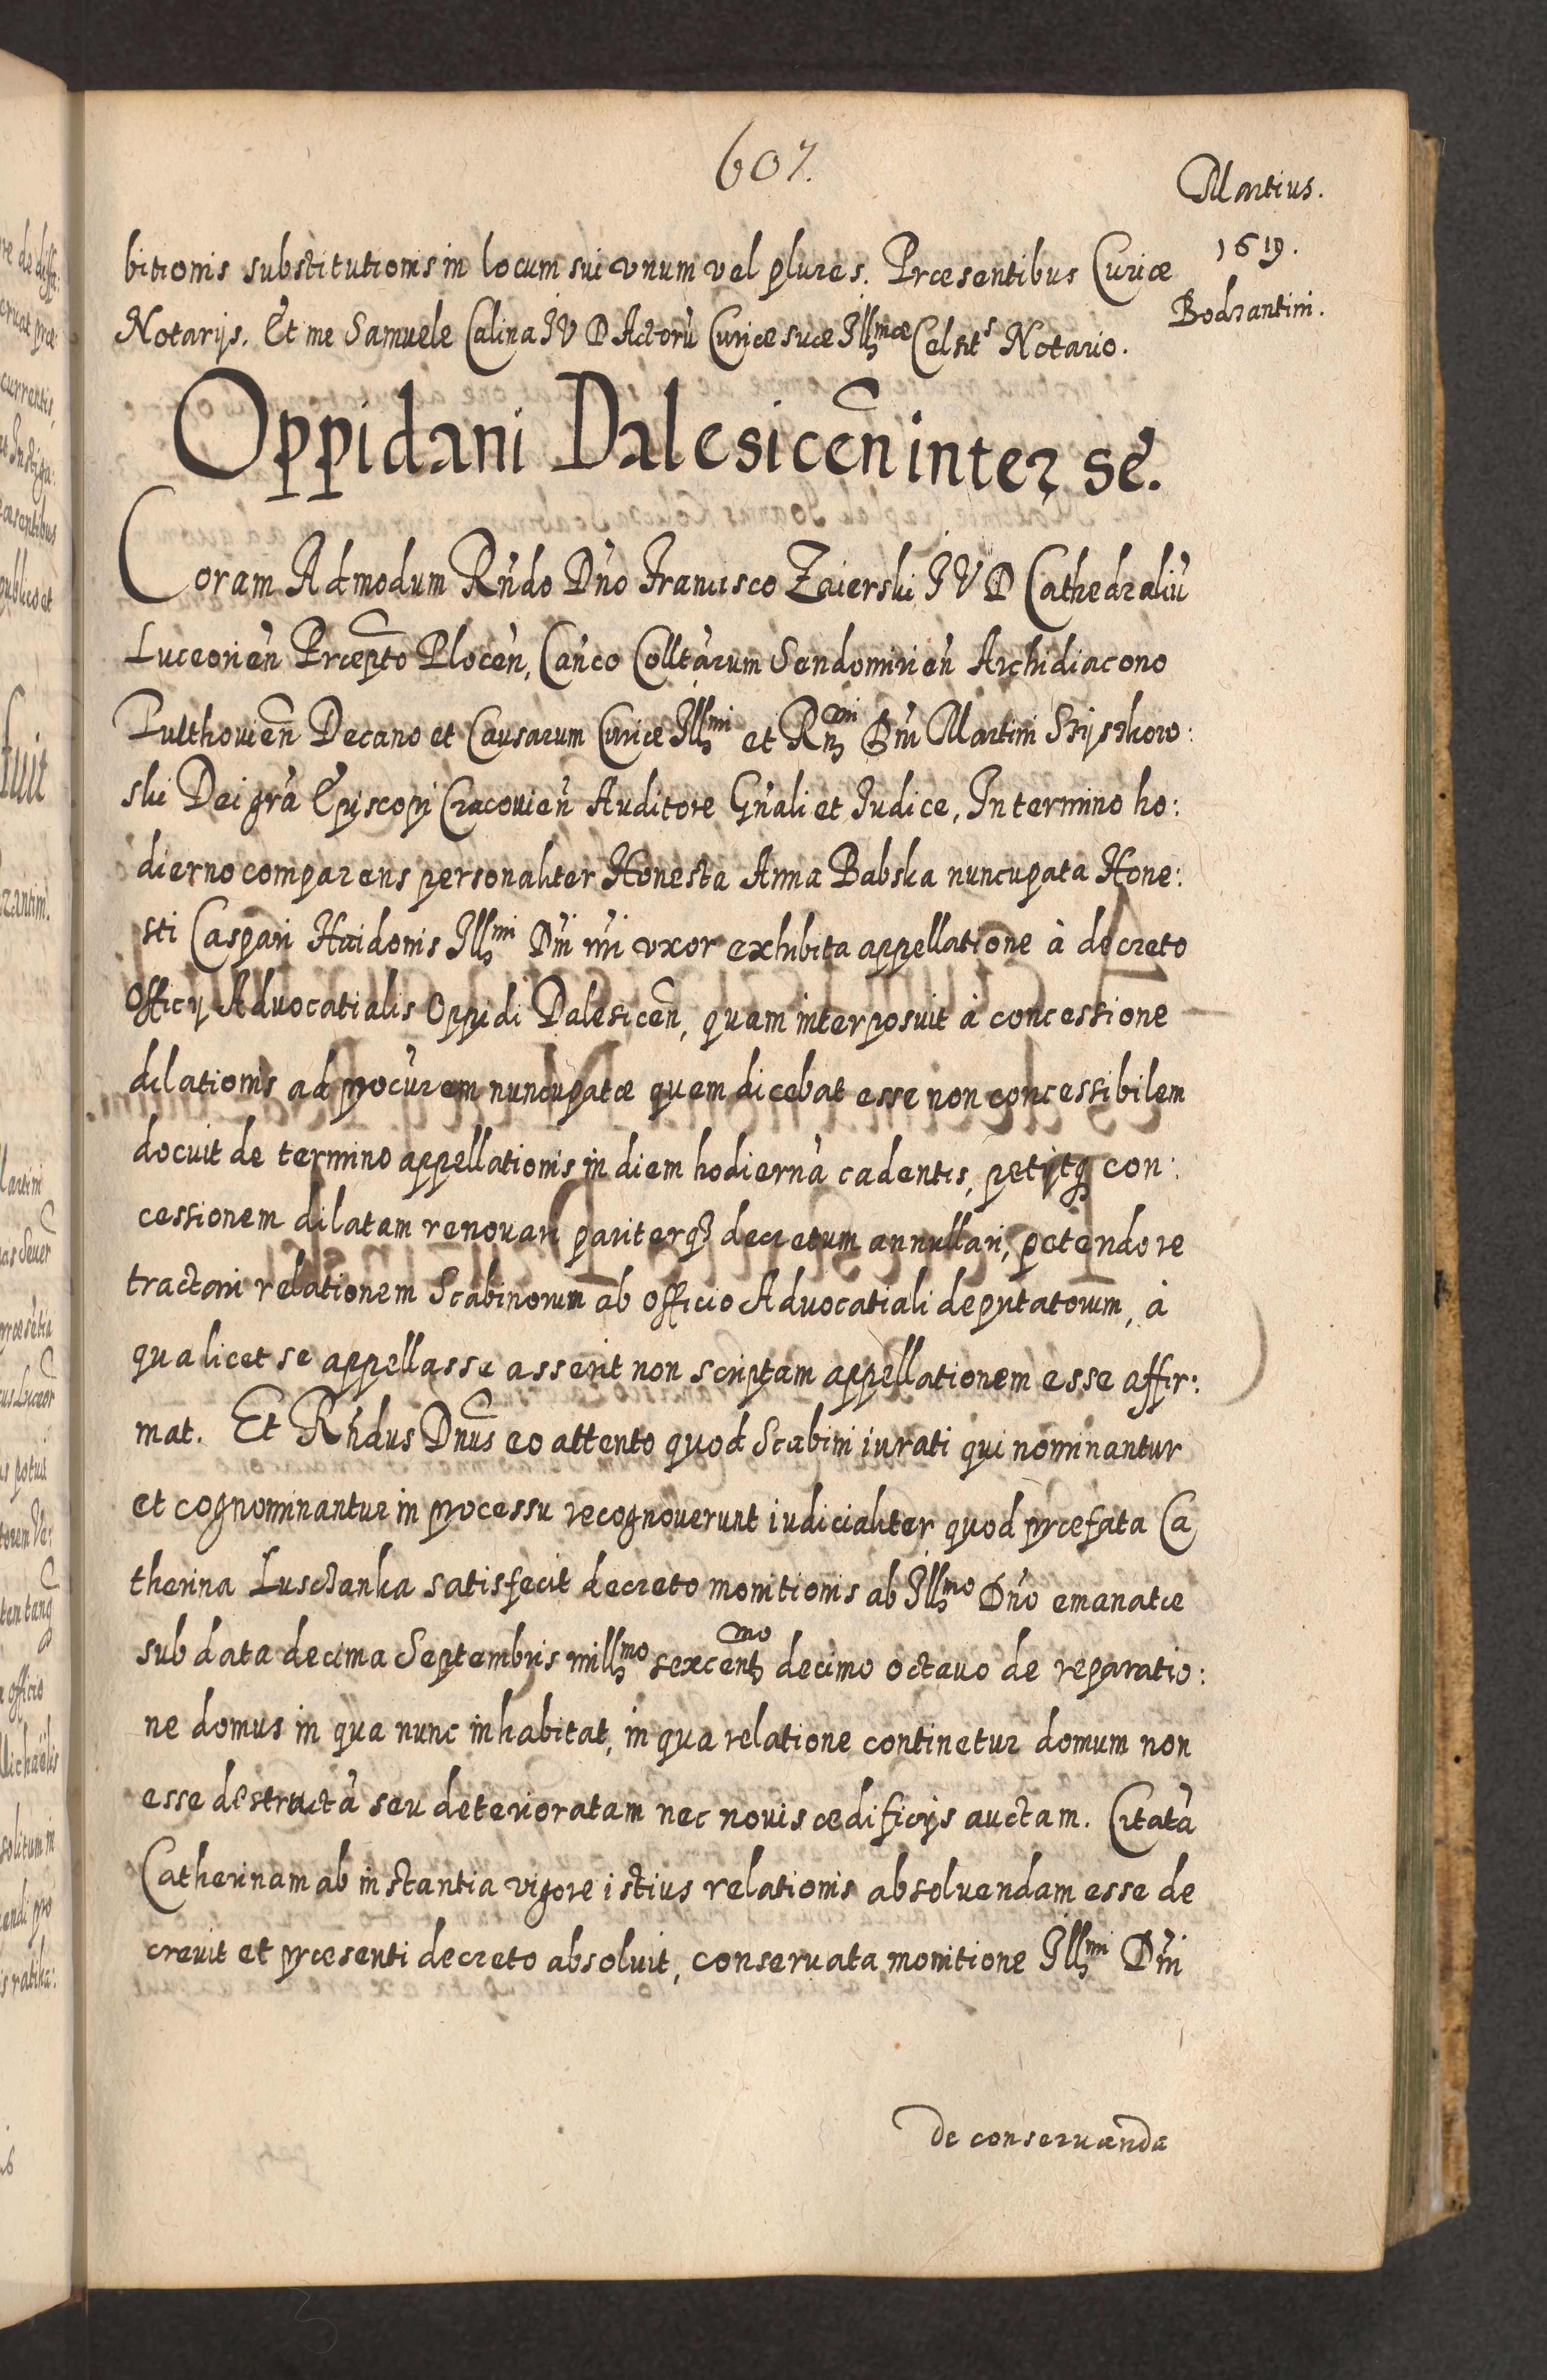 607.
Martius.
1619.
Bodzantini.
bitionis substitutionis in locum sui vnum vel plures. Præsentibus Curiæ
Notarijs. Et me Samuele Calina IVD Actorù Curiæ suæ Illmæ Celsits Notario.
Oppidani Dalesicen inter se.
Coram Admodum Rńdo Dńo Francisco Zaierski IVD Cathedraliù
Luceorień Præpto Plocen, Cańco Colltarum Sandomirień Archidiacono
Pulthouien Decano et Causarum Curiæ Illmi et Rmi Dńi Martini Szyszkow:
ski Dei grà Episcopi Cracouień Auditore Gńali et Iudice, In termino ho:
dierno comparens personaliter Honesta Anna Babska nuncupata Hone:
sti Caspari Haidonis Illmi Dńi ńri vxor exhibita appellatione à decreto
Officij Aduocatialis Oppidi Dalesicen, quam interposuit à concessione
dilationis ad procurem nuncupatæ quem dicebat esse non concessibilem
docuit de termino appellationis in diem hodiernà cadentis, petijtq con:
cessionem dilatam renouari pariterq decretum annullari, petendo re
tractari relationem Scabinorum ab officio Aduocatiali deputatorum, à
qua licet se appellasse asserit non scriptam appellationem esse affir:
mat. Et Rńdus Dnus eo attento quod Scabini iurati qui nominantur
et cognominantur in processu recognouerunt iudicialiter quod præfata Ca
therina Luschanka satisfecit decreto monitionis ab Illmo Dńo emanatæ
sub data decima Septembris millmo sexcentmo decimo octauo de reparatio:
ne domus in qua nunc inhabitat, in qua relatione continetur domum non
esse destructà seu deterioratam nec nouis ædificijs auctam. Citatà
Catherinam ab instantia vigore istius relationis absoluendam esse de
creuit et præsenti decreto absoluit, conseruata monitione Illmi Dńi
de conseruanda